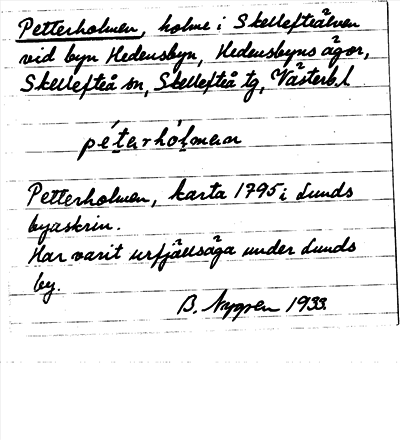 Petterholmen, holme i Skellefteälven
vid byn Hedensbyn, Hedensbyns ägor,
Skellefteå sn, Skellefteå tg, Västerb. l.
pétərhólmən
Petterholmen, karta 1795 i Lunds
byaskrin.
Har varit urfjällsäga under Lunds
by.
B. Nygren 1933.